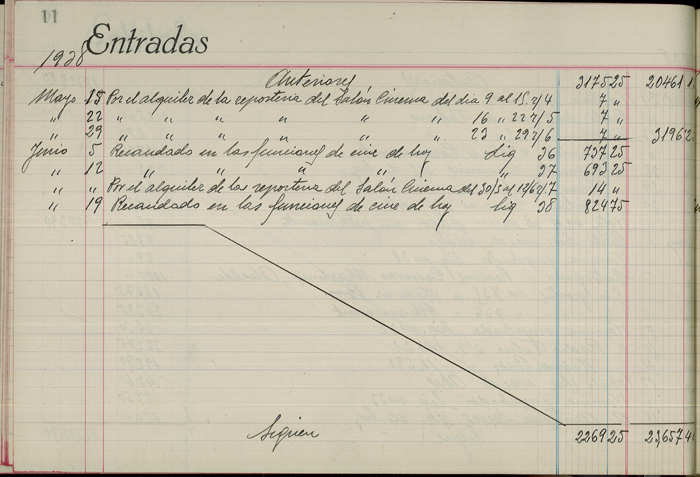 11
Entradas
1928
Anteriores 3175 25 20461 1
Mayo 15 Por el alquiler de la reposteria del Salón Cinema del dia 9 al 15. r/4 7 „
„ 22 „ „ „ „ „ „ 16 „ 22 r/5 7 „
„ 29 „ „ „ „ „ „ 23 „ 29 r/6 7 „ 3196 2
Junio 5 Recaudado en las funciones de cine de hoy Liq 36 737 25
„ 12 „ „ „ „ „ „ 37 693 25
„ „ Por el alquiler de la reposteria del Salón Cinema del 30/5 al 12/6 r/7 14 „
„ 19 Recaudado en las funciones de cine de hoy Liq 38 824 75
Siguen 2269 25 23,657 4